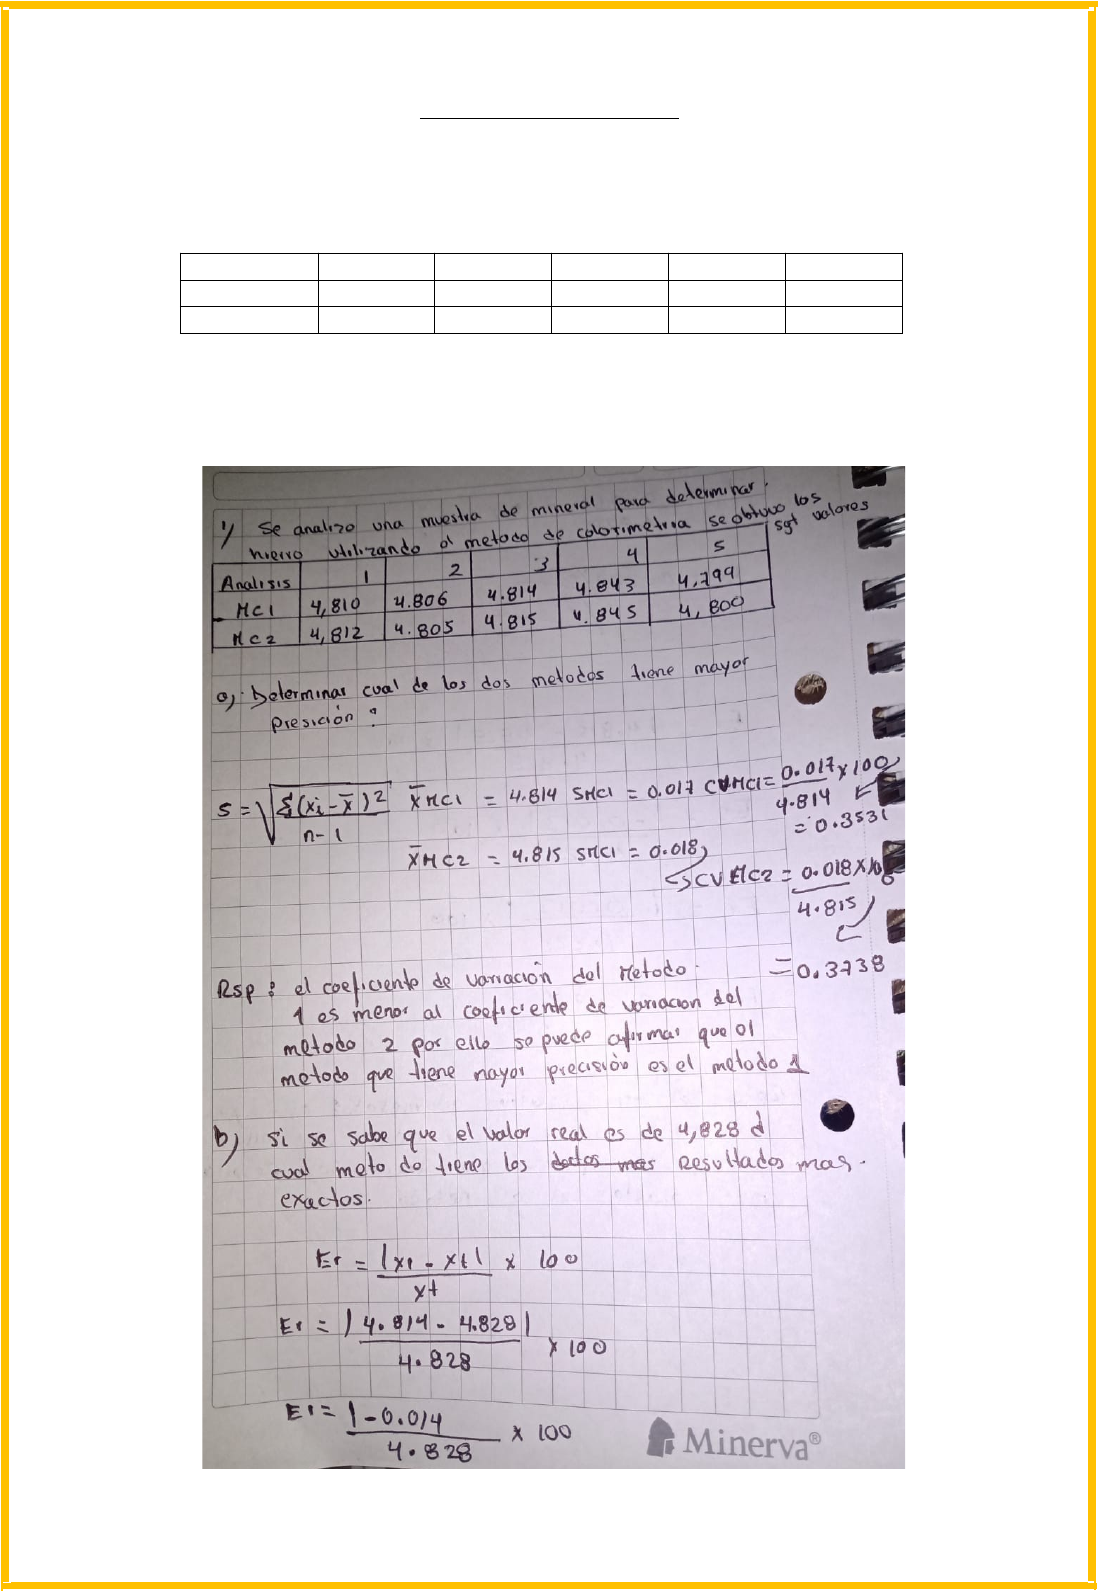 1) Se analizo una muestra de mineral para determinar
hierro utilizando el metodo de colorimetria se obtuvo los
sgt valores
Analisis 1 2 3 4 5
MC1 4,810 4.806 4.814 4.843 4,799
MC2 4,812 4.805 4.815 4.845 4,800
a) Determinar cual de los dos metodos tiene mayor
presición?
S = √ Σ(xi - x̄)2 / n-1 x̄ MC1 = 4.814 SMC1 = 0.017 CVMC1 = 0.017 x 100 / 4.814
= 0.3531
x̄ MC2 = 4.815 SMC1 = 0.018
CV MC2 = 0.018 x 100 / 4.815
= 0.3738
Rsp: el coeficiente de variación del Metodo
1 es menor al coeficiente de variacion del
metodo 2 por ello se puede afirmar que el
metodo que tiene mayor precisión es el metodo 1
b) si se sabe que el valor real es de 4,828 d
cual metodo tiene los datos mas Resultados mas
exactos.
Er = |x1 - xt| / xt x 100
Er = |4.814 - 4.828| / 4.828 x 100
Er = |-0.014 / 4.828 x 100
Minerva®